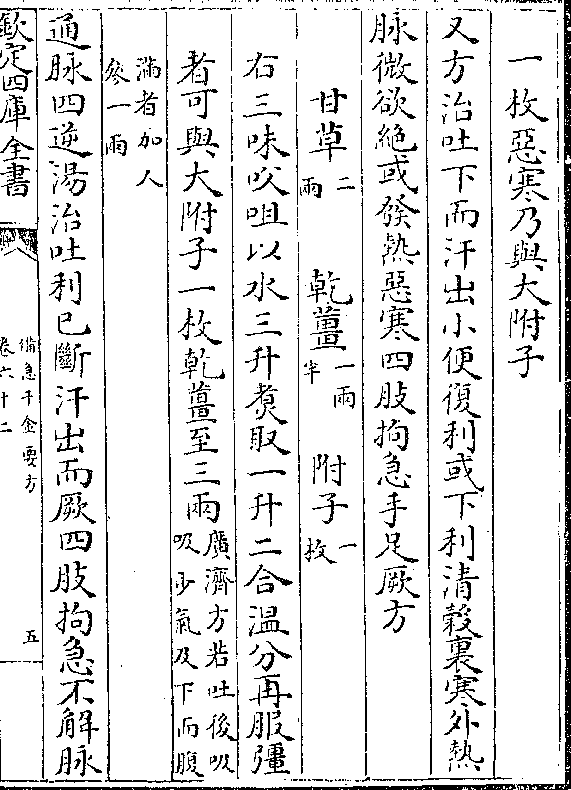 一枚惡寒乃與大附子
又方治吐下而汗出小便復利或下利清穀裏寒外熱
脉微欲絶或發熱惡寒四肢拘急手足厥方
甘草二兩 乾薑一兩半 附子一枚
右三味㕮咀以水三升煑取一升二合温分再服彊
者可與大附子一枚乾薑至三兩廣濟方若吐後吸吸少氣及下而腹
滿者加人參一兩
通脉四逆湯治吐利已斷汗出而厥四肢拘急不解脉
欽定四庫全書
備急千金要方
卷六十二
五